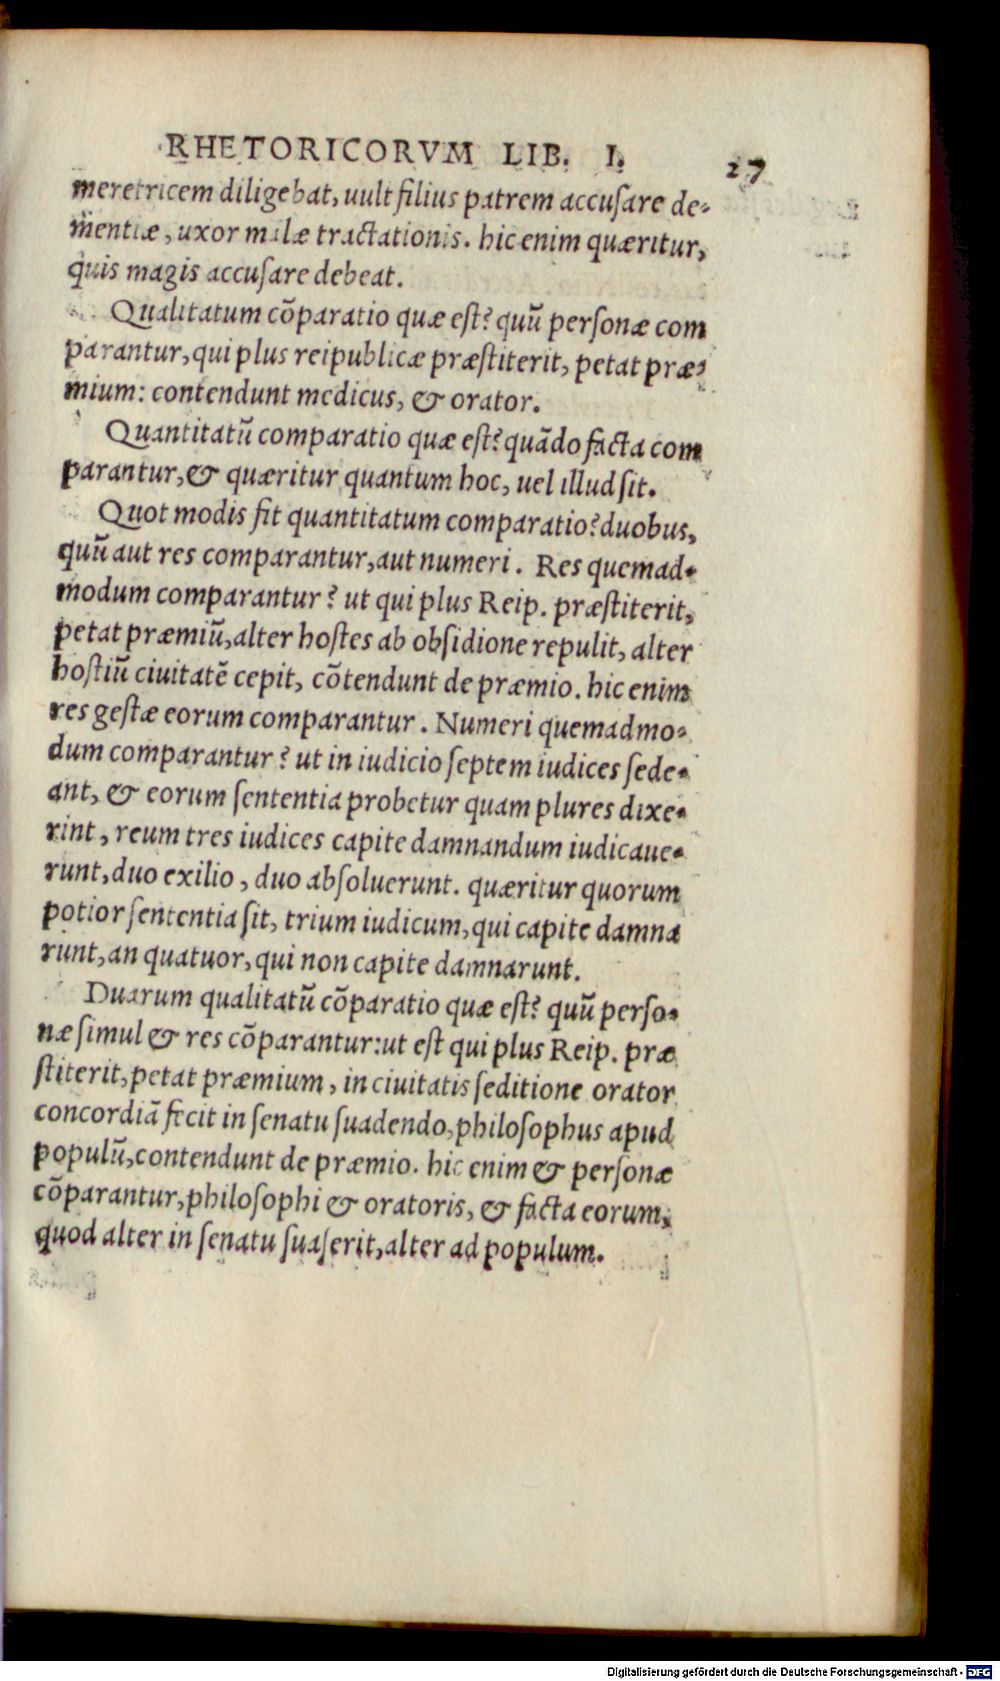 RHETORICORVM LIB. I. 27
meretricem diligebat, uult filius patrem accuſare de-
mentiæ, uxor malæ tractationis. hic enim quæritur,
quis magis accuſare debeat.
Qualitatum cõparatio quæ eſt? quũ perſonæ com
parantur, qui plus reipublicæ præſtiterit, petat præ-
mium: contendunt medicus, & orator.
Quantitatũ comparatio quæ eſt? quãdo facta com
parantur, & quæritur quantum hoc, uel illud ſit.
Quot modis fit quantitatum comparatio? duobus,
quũ aut res comparantur, aut numeri. Res quemad-
modum comparantur? ut qui plus Reip. præſtiterit,
petat præmiũ, alter hoſtes ab obſidione repulit, alter
hoſtiũ ciuitatẽ cepit, cõtendunt de præmio. hic enim
res geſtæ eorum comparantur. Numeri quemadmo-
dum comparantur? ut in iudicio ſeptem iudices ſede-
ant, & eorum ſententia probetur quam plures dixe-
rint, reum tres iudices capite damnandum iudicaue-
runt, duo exilio, duo abſoluerunt. quæritur quorum
potior ſententia ſit, trium iudicum, qui capite damna
runt, an quatuor, qui non capite damnarunt.
Duarum qualitatũ cõparatio quæ eſt? quũ perſo-
næ ſimul & res cõparantur: ut eſt qui plus Reip. præ
ſtiterit, petat præmium, in ciuitatis ſeditione orator
concordiã fecit in ſenatu ſuadendo, philoſophus apud
populũ, contendunt de præmio. hic enim & perſonæ
cõparantur, philoſophi & oratoris, & facta eorum,
quod alter in ſenatu ſuaſerit, alter ad populum.
Digitalisierung gefördert durch die Deutsche Forschungsgemeinschaft - DFG